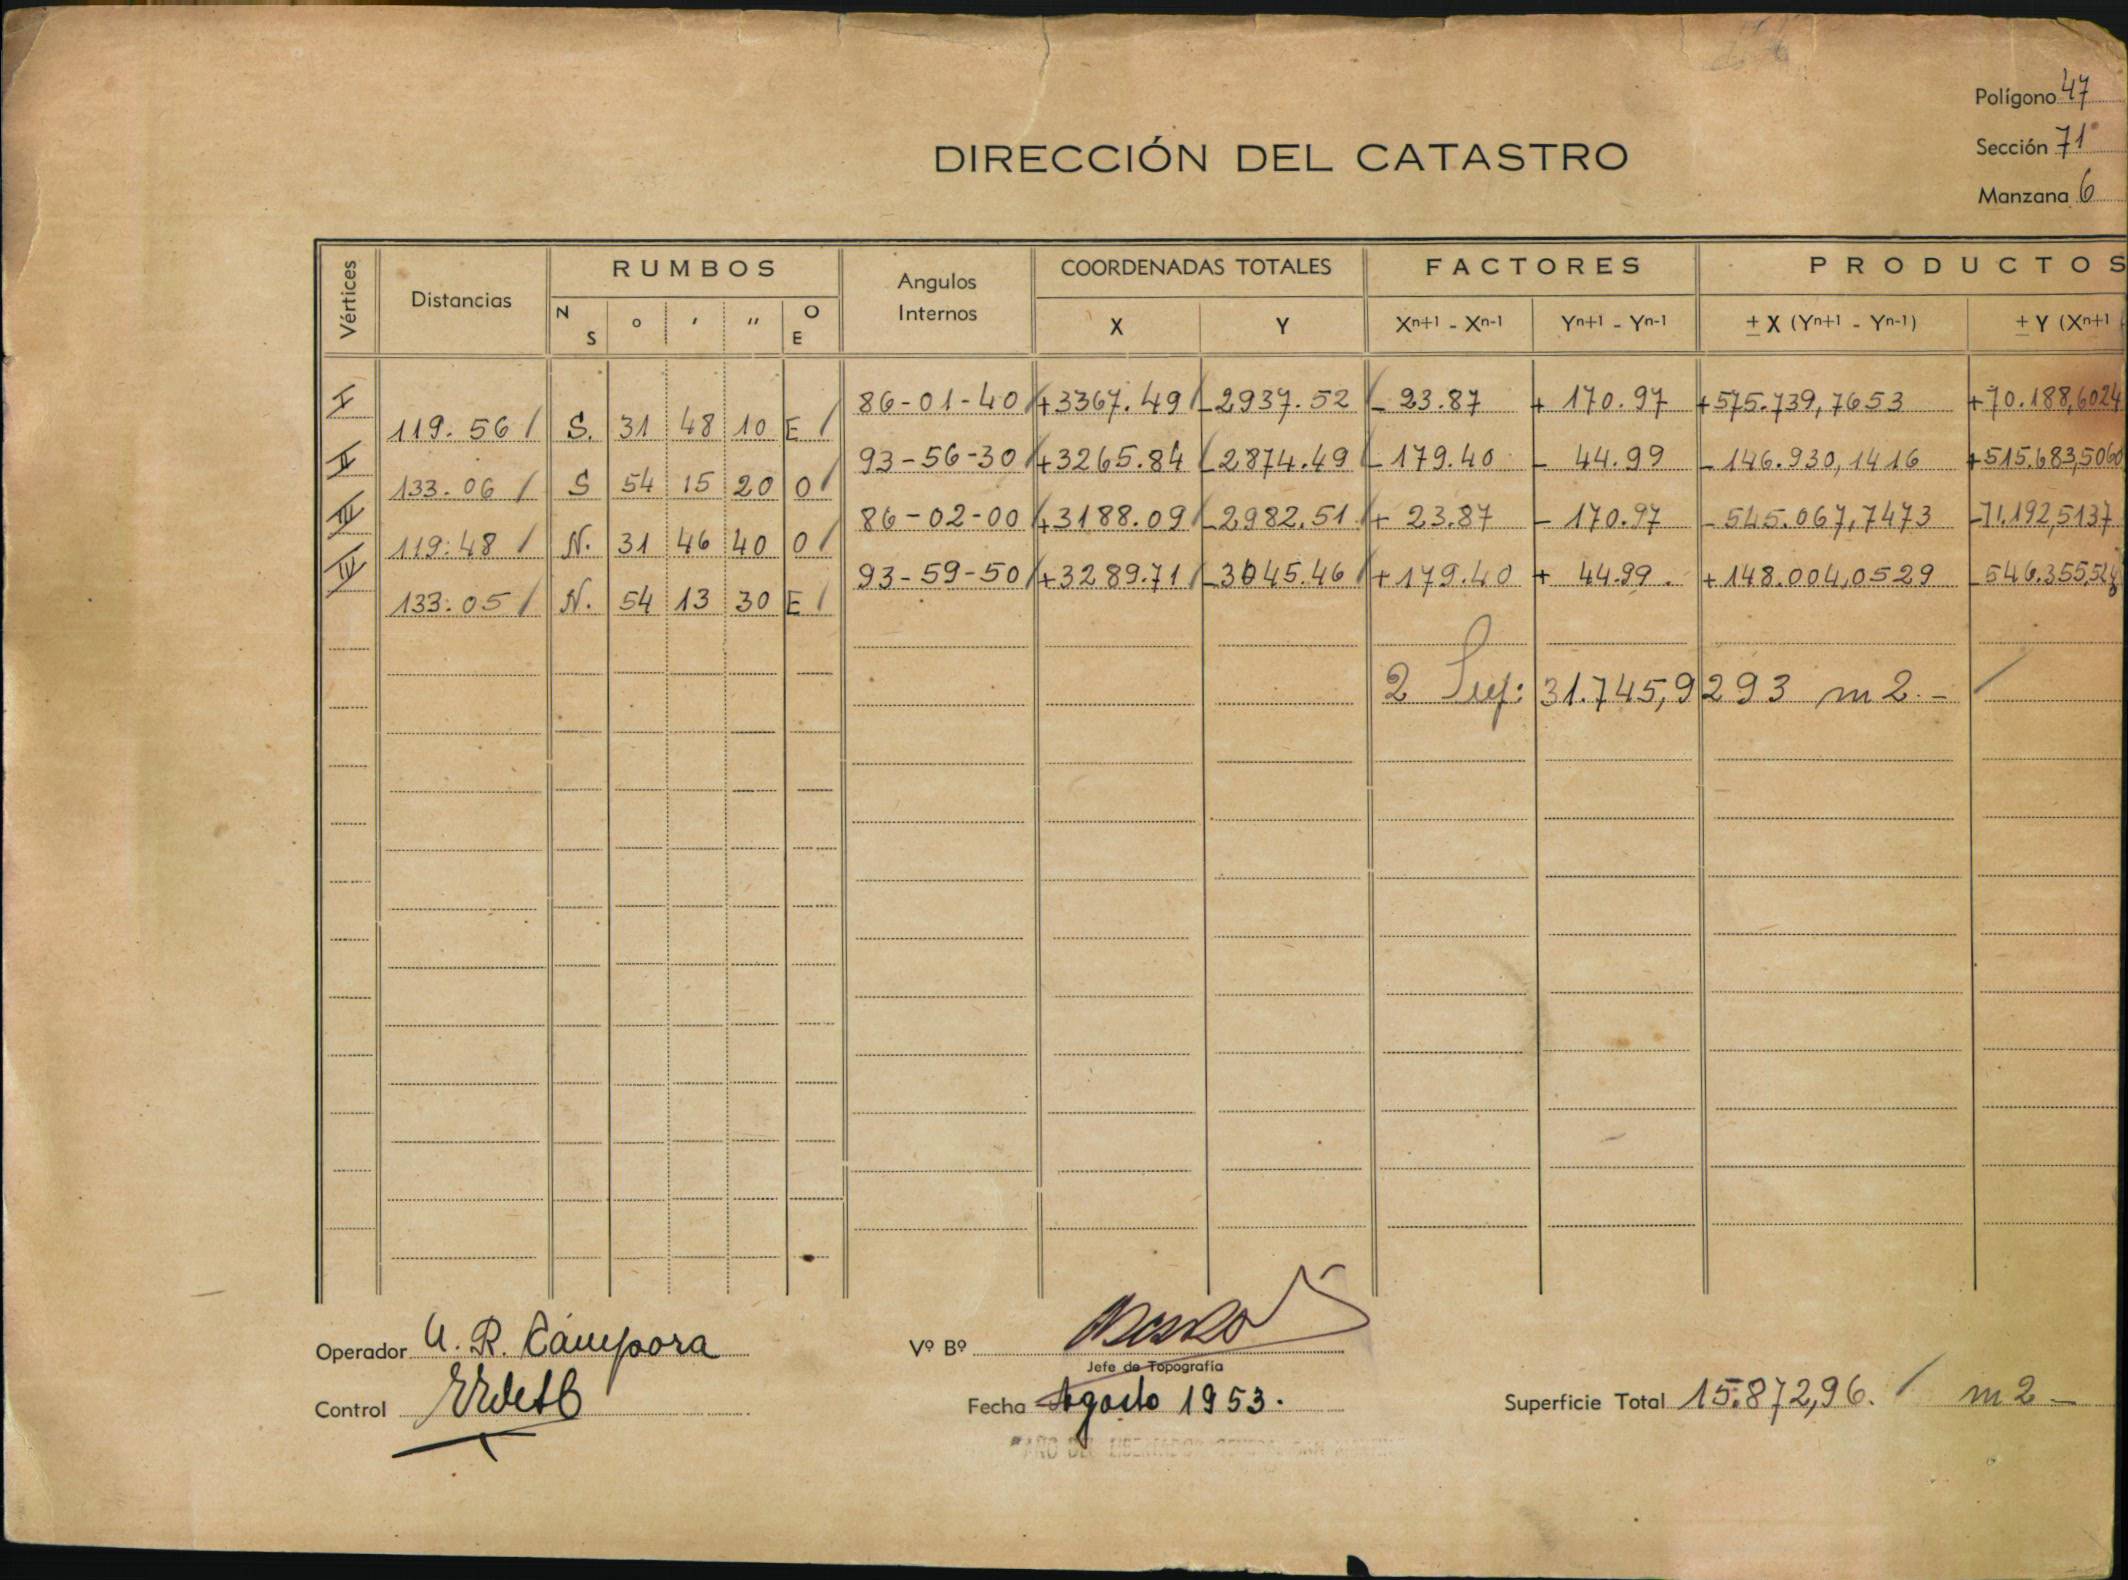 Polígono 47
DIRECCIÓN DEL CATASTRO
Sección 71
Manzana 6
Vértices Distancias RUMBOS Angulos Internos COORDENADAS TOTALES FACTORES PRODUCTOS
N S o ′ ″ O E X Y Xn+1 - Xn-1 Yn+1 - Yn-1 ± X (Yn+1 - Yn-1) ± Y (Xn+1
I 86-01-40 +3367.49 -2937.52 - 23.87 + 170.97 +575.739,7653 +70.188,6024
119.56 S. 31 48 10 E
II 93-56-30 +3265.84 -2874.49 - 179.40 - 44.99 -146.930,1416 +515.683,5060
133.06 S 54 15 20 O
III 86-02-00 +3188.09 -2982.51 + 23.87 - 170.97 -545.067,7473 -71.192,5137
119.48 N. 31 46 40 O
IV 93-59-50 +3289.71 -3045.46 +179.40 + 44.99. +148.004,0529 -546.355,524
133.05 N. 54 13 30 E
2 Sup: 31.745,9293 m2.-
Operador U. R. Cámpora Vº Bº
Jefe de Topografía
Control Fecha Agosto 1953. Superficie Total 15.872,96. m2-